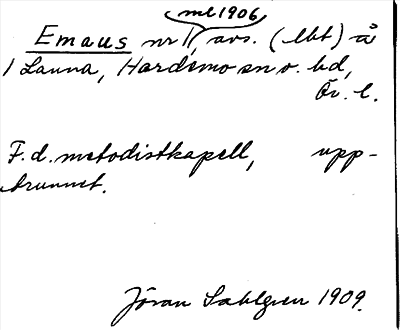 ml 1906
Emaus nr 1, avs. (lbt) å
1 Launa, Hardemo sn o. hd,
Ör. l.
F.d. metodistkapell, upp-
brunnet.
Jöran Sahlgren 1909.